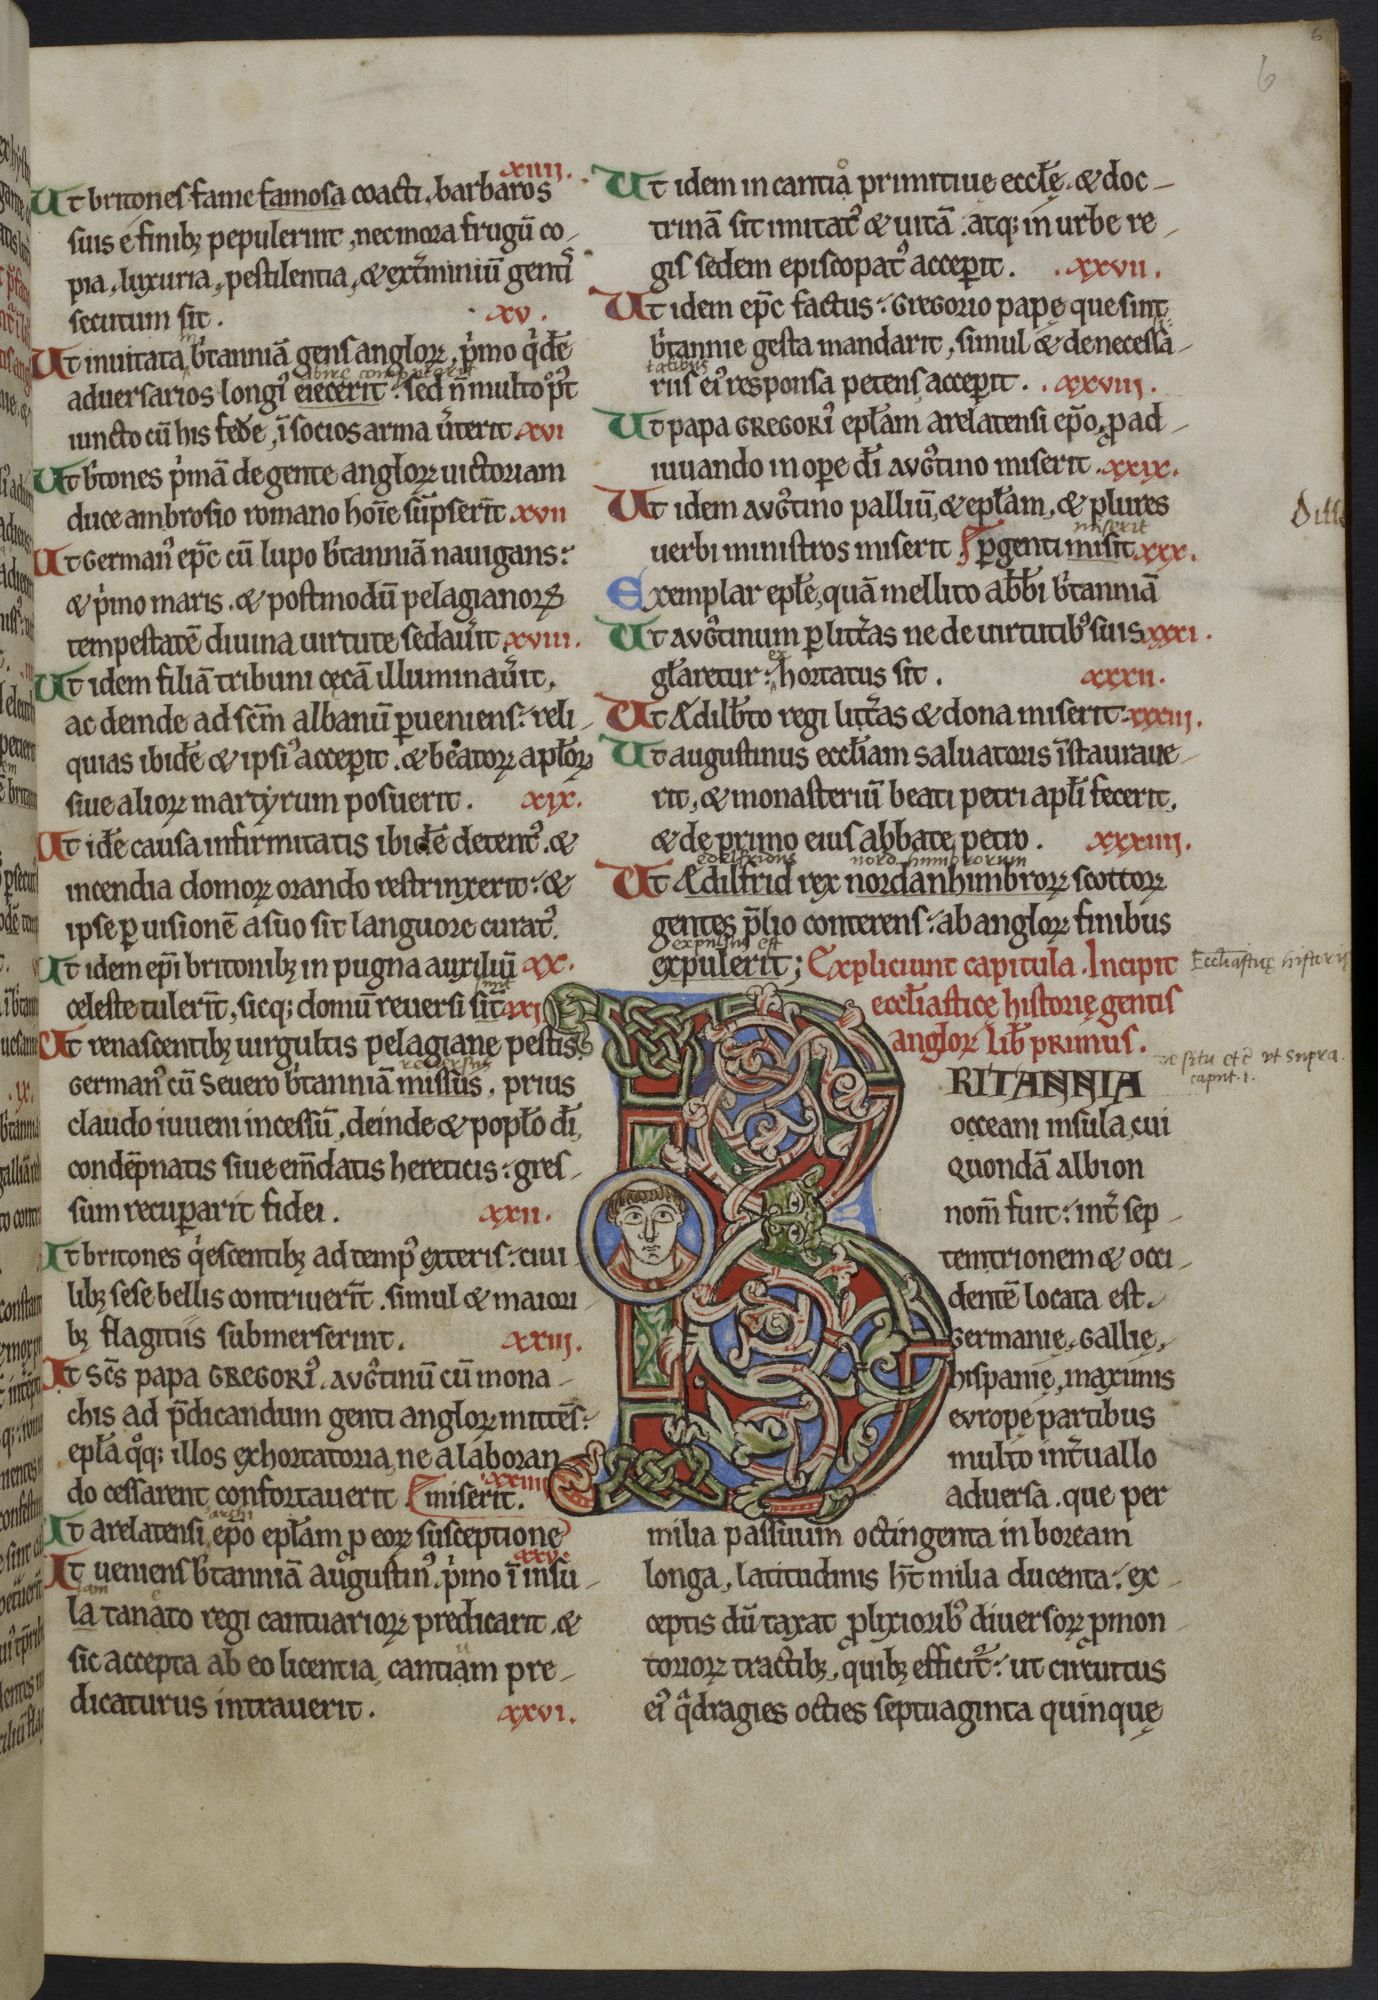 6
6
xiiij.
Ut britones fame famosa coacti, barbaros
suis e finibȝ pepulerint, nec mora frugū co-
pia, luxuria, pestilentia, & ext̄miniū genti᷒
secutum sit. xv.
Ut inuitata b̓tanniā gens angloꝝ, p̓mo q̓dē
aduersarios longi᷒ eiecerit: sed n̄ multo p᷒t
iuncto cū his fedẽ, ī socios arma u̓terit xvi
Ut b̓tones p̓mā de gente angloꝝ uictoriam
duce ambrosio romano hoīe sūpserīt xvii
Ut German᷒ ep̄c cū lupo b̓tanniā nauigans:
& p̓mo maris. & postmodū pelagianoꝝ
tempestatē diuina uirtute sedau̓it xviii.
Ut idem filiā tribuni cęcā illuminau̓it,
ac deinde ad sc̄m albanū ꝑueniens: reli-
quias ibidē & ipsi᷒ accepit. & beatoꝝ apl̄oꝝ
siue alioꝝ martyrum posuerit. xix.
Ut idē causa infirmitatis ibidē detent᷒. &
incendia domoꝝ orando restrinxerit: &
ipse ꝑ uisionē a suo sit languore curat᷒.
Ut idem ep̄i britonibȝ in pugna auxiliū xx.
sint
celeste tulerīt, sicq; domū reuersi sīt xxi
Ut renascentibȝ uirgultis pelagiane pestis
reuersus
German᷒ cū Seuero b̓tanniā missus, prius
claudo iuueni incessū, deinde & popl̄o dī,
condēpnatis siue em̄datis hereticis: gres-
sum recuꝑarit fidei. xxii.
Ut britones q̓escentibȝ ad temp᷒ exteris: ciui-
libȝ sese bellis contriuerīt. simul & maiori-
bȝ flagitiis submerserint. xxiii.
Ut Sc̄s papa GREGORI᷒. auḡtinū cū mona-
chis ad p̄dicandum genti angloꝝ mittēs:
ep̄lā qͦq; illos exhortatoria, ne a laboran
do cessarent confortauerit miserit. xxiiii
archi
Ut arelatensi ep̄o ep̄lam p eoꝝ susceptione
xxv.
Ut ueniens b̓tanniā augustin᷒. p̓mo ī insu-
lam
la tanato regi cantuarioꝝ predicarit. &
sic accepta ab eo licentia, cantiam pre-
dicaturus intrauerit. xxvi.
Ut idem in cantia primitiue eccl̄ę. & doc-
trinā sit imitat᷒ & uitā. atq; in urbe re-
gis sedem episcopat᷒ acceꝑit. . xxvii.
Ut idem ep̄c factus: GREGORIO pape que sint
b̓tannie gesta mandarit, simul & de necessa-
tatibus
riis ei᷒ responsa petens acceꝑit. . xxviii.
Ut papa GREGORI᷒ ep̄lam arelatensi ep̄o, ꝓ ad-
iuuando in opere dī auḡtino miserit. xxix.
Ut idem auḡtino palliū, & ep̄lam, & plures
miserit
uerbi ministros miserit ꝑgenti misit xxx.
Exemplar ep̄le, quā mellito abb̄i b̓tanniā
Ut auḡtinum ꝑ litt̄as ne de uirtutib᷒ suis xxxi.
ex
gl̄aretur: hortatus sit. xxxii.
Ut Ædilb̄to regi litt̄as & dona miserit. xxxiii.
Ut augustinus eccl̄iam saluatoris īstauraue-
rit, & monasteriū beati petri apl̄i fecerit,
& de primo eius abbate petro. xxxiiii.
edelfridus nord humbrorum
Ut Ædilfrid rex nordanhimbroꝝ scottoꝝ
gentes p̄lio conterens: ab angloꝝ finibus
expulsus est
expulerit; Expliciunt capitula. Incipit
eccl̄iastice historię gentis
angloꝝ Lib̄ primus.
Eccl̄iasticę historię
de situ etc̄ ut supra.
caput. 1.
BRITANNIA
occeani insula, cui
quondā albion
nom̄ fuit: int̓ sep-
temtrionem & occi-
dentē locata est.
Germanię, Gallię,
hispanię, maximis
europę partibus
multo int̓uallo
aduersa. que per
milia passuum octingenta in boream
longa, latitudinis h̄t milia ducenta: ex-
ceptis dū taxat ꝓlixiorib᷒ diuersoꝝ ꝓmon-
torioꝝ tractibȝ, quibȝ efficit᷒: ut circuitus
ei᷒ qͣdragies octies septuaginta quinque